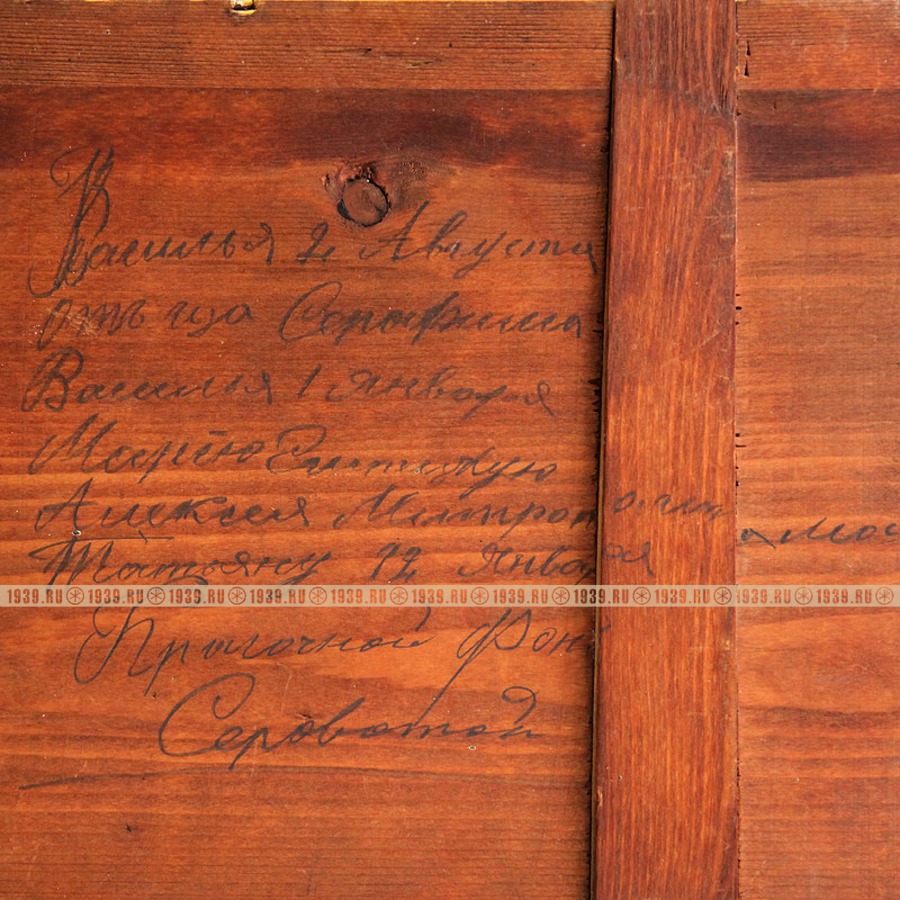 Василья 2 Августа
отъца Серафима
Василья 1 Января
Марію Египецкую
Алексея Митрополита мос
Татьяну 12 Января
1939.RU 1939.RU 1939.RU 1939.RU 1939.RU 1939.RU 1939.RU 1939.RU 1939.RU 1939.RU 1939.RU
Фон
Серовотой